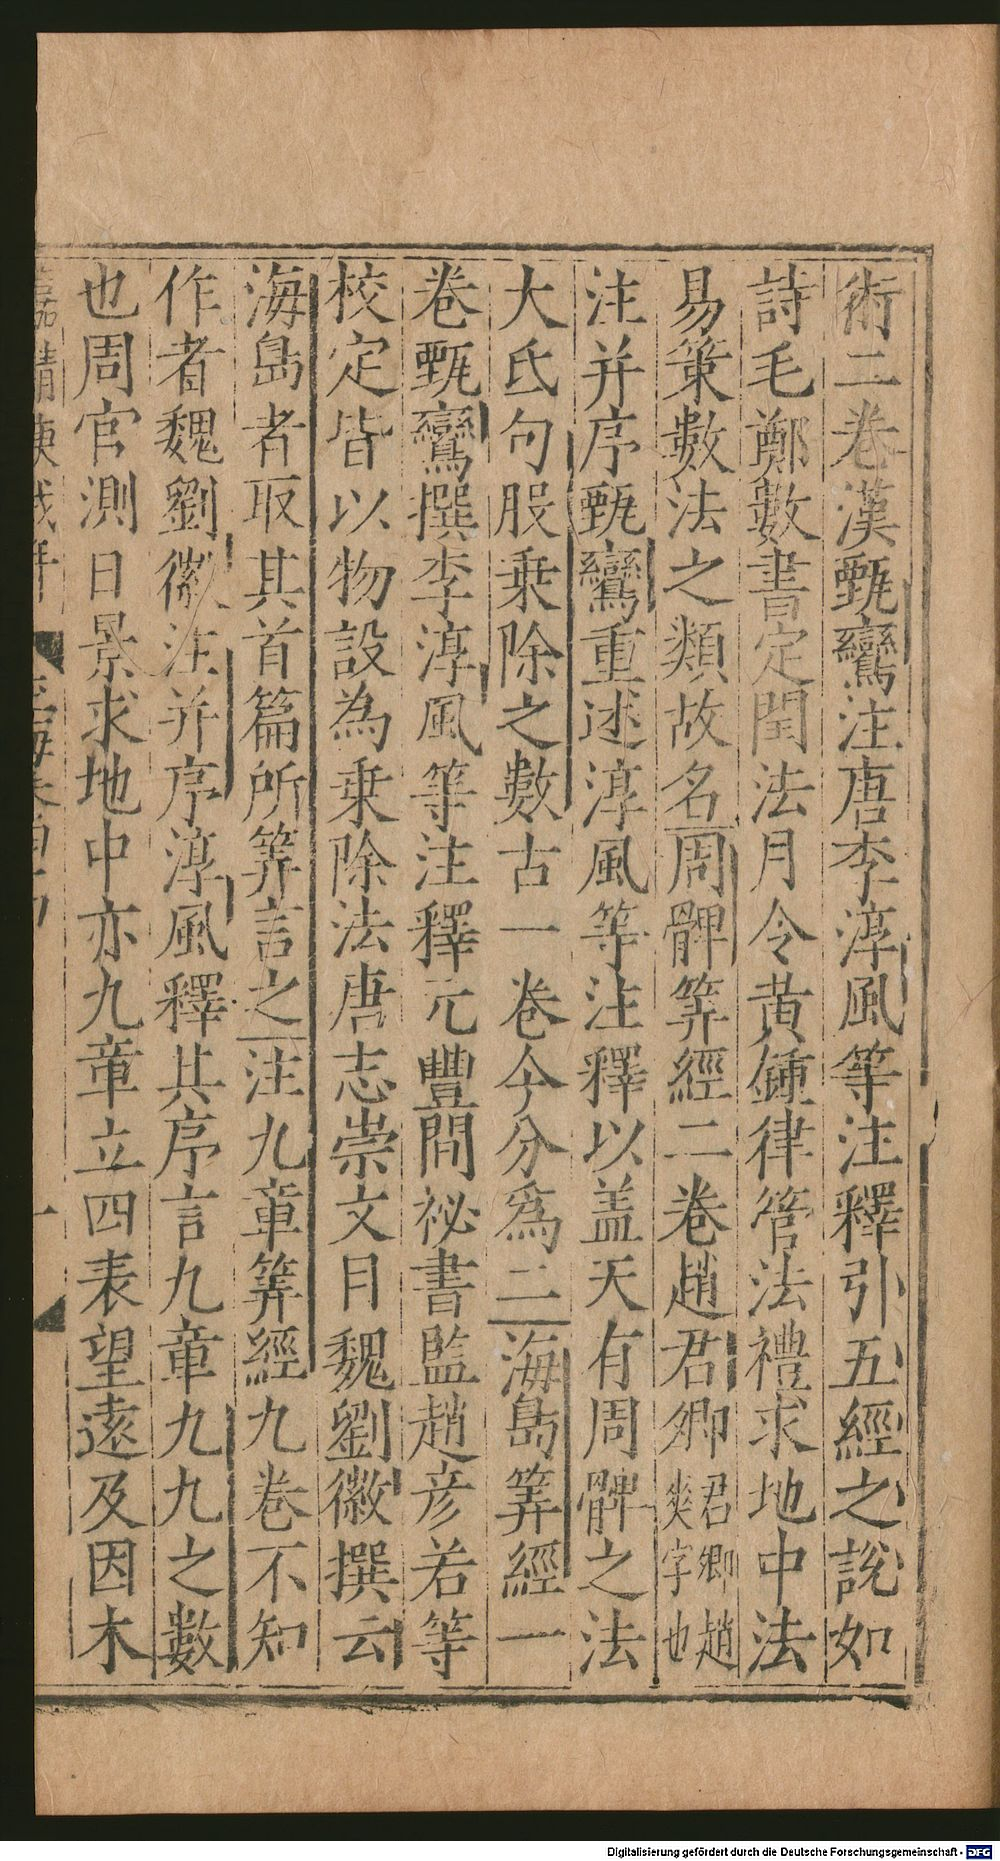 術二卷漢甄鸞注唐李淳風等注釋引五經之說如
詩毛鄭數書定閏法月令黄鍾律管法禮求地中法
易策數法之類故名周髀筭經二卷趙君卿君卿趙爽字也
注并序甄鸞重述淳風等注釋以盖天有周髀之法
大氐句股乗除之數古一卷今分爲二海島筭經一
卷甄鸞撰李淳風等注釋元豐間祕書監趙彦若等
校定皆以物設為乗除法唐志崇文目魏劉徽撰云
海島者取其首篇所筭言之注九章筭經九卷不知
作者魏劉徽注并序淳風釋其序言九章九九之數
也周官測日景求地中亦九章立四表望逺及因木
嘉靖庚戌年
一
Digitalisierung gefördert durch die Deutsche Forschungsgemeinschaft - DFG